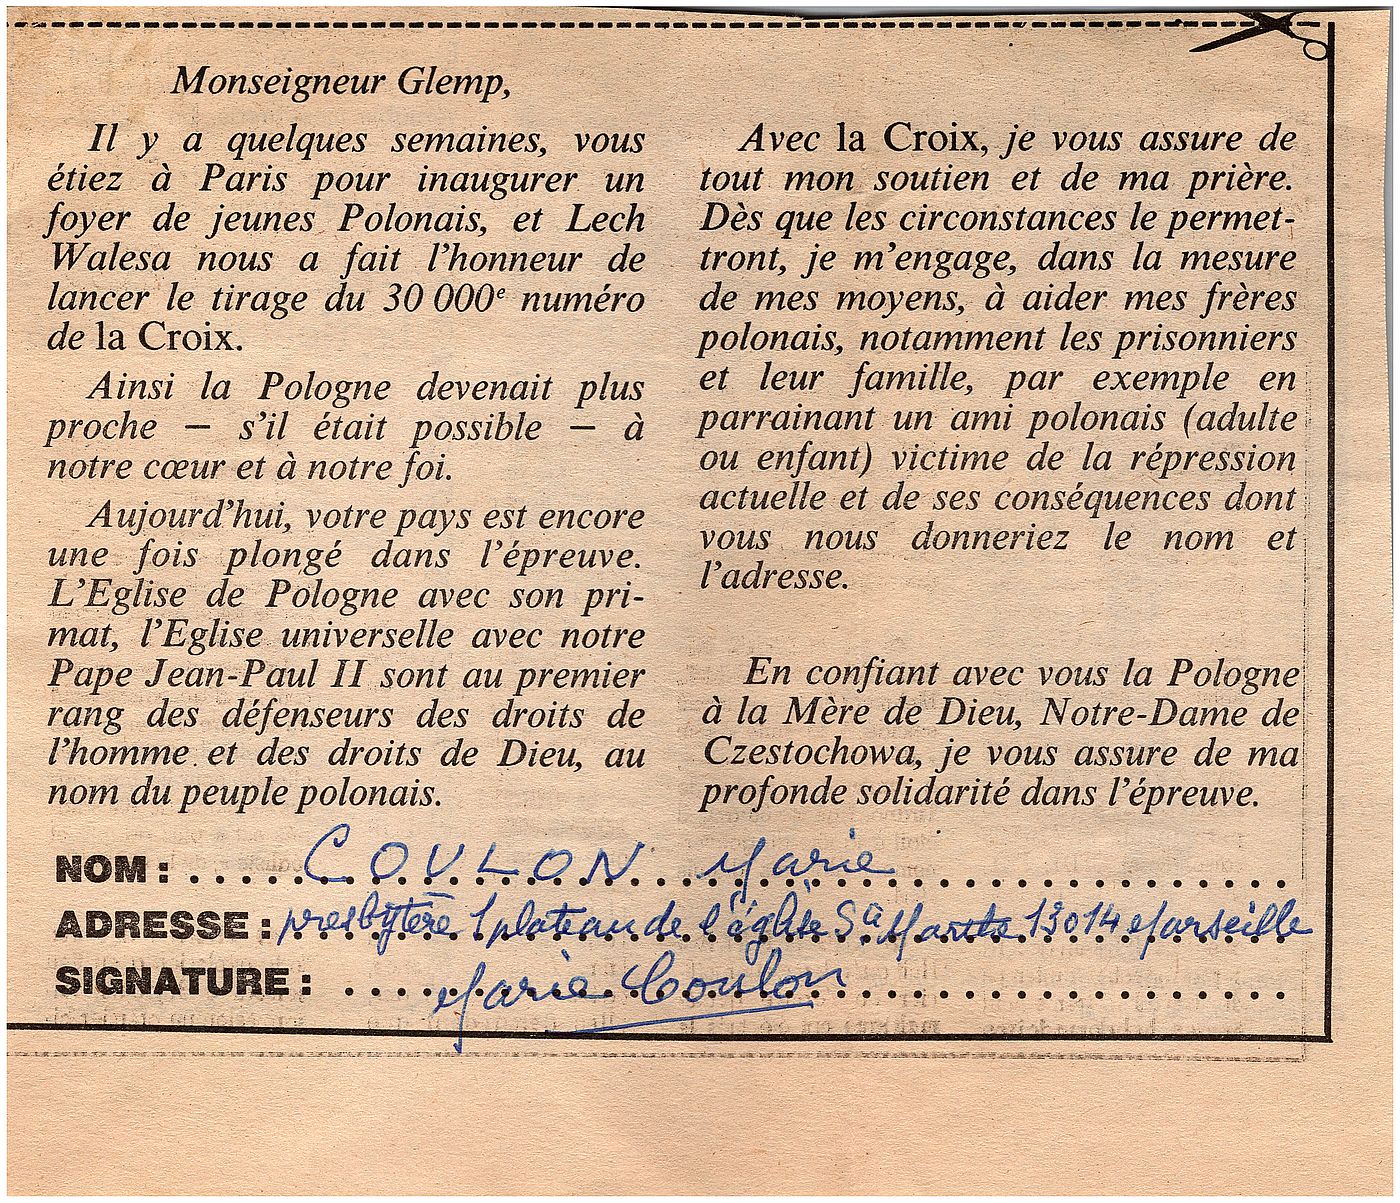 Monseigneur Glemp,
Il y a quelques semaines, vous
étiez à Paris pour inaugurer un
foyer de jeunes Polonais, et Lech
Walesa nous a fait l'honneur de
lancer le tirage du 30 000e numéro
de la Croix.
Ainsi la Pologne devenait plus
proche – s'il était possible – à
notre cœur et à notre foi.
Aujourd'hui, votre pays est encore
une fois plongé dans l'épreuve.
L'Eglise de Pologne avec son pri-
mat, l'Eglise universelle avec notre
Pape Jean-Paul II sont au premier
rang des défenseurs des droits de
l'homme et des droits de Dieu, au
nom du peuple polonais.
Avec la Croix, je vous assure de
tout mon soutien et de ma prière.
Dès que les circonstances le permet-
tront, je m'engage, dans la mesure
de mes moyens, à aider mes frères
polonais, notamment les prisonniers
et leur famille, par exemple en
parrainant un ami polonais (adulte
ou enfant) victime de la répression
actuelle et de ses conséquences dont
vous nous donneriez le nom et
l'adresse.
En confiant avec vous la Pologne
à la Mère de Dieu, Notre-Dame de
Czestochowa, je vous assure de ma
profonde solidarité dans l'épreuve.
NOM : COULON Marie
ADRESSE : presbytère 1 plateau de l'église Sa Marthe 13014 Marseille
SIGNATURE : Marie Coulon